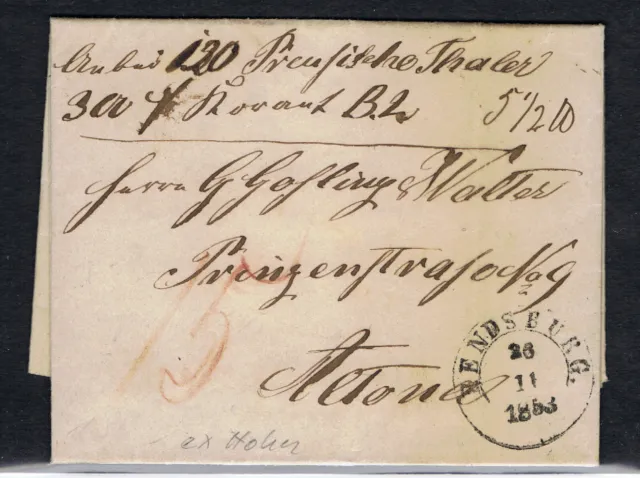 Anbei 120 Preußische Thaler
300 ₰ Korant B.L. 5 1/2 lb
Herrn G Gohling & Walter
Prinzenstraße No 9
15
Altona
RENDSBURG.
26
11
1853
ex Hoher